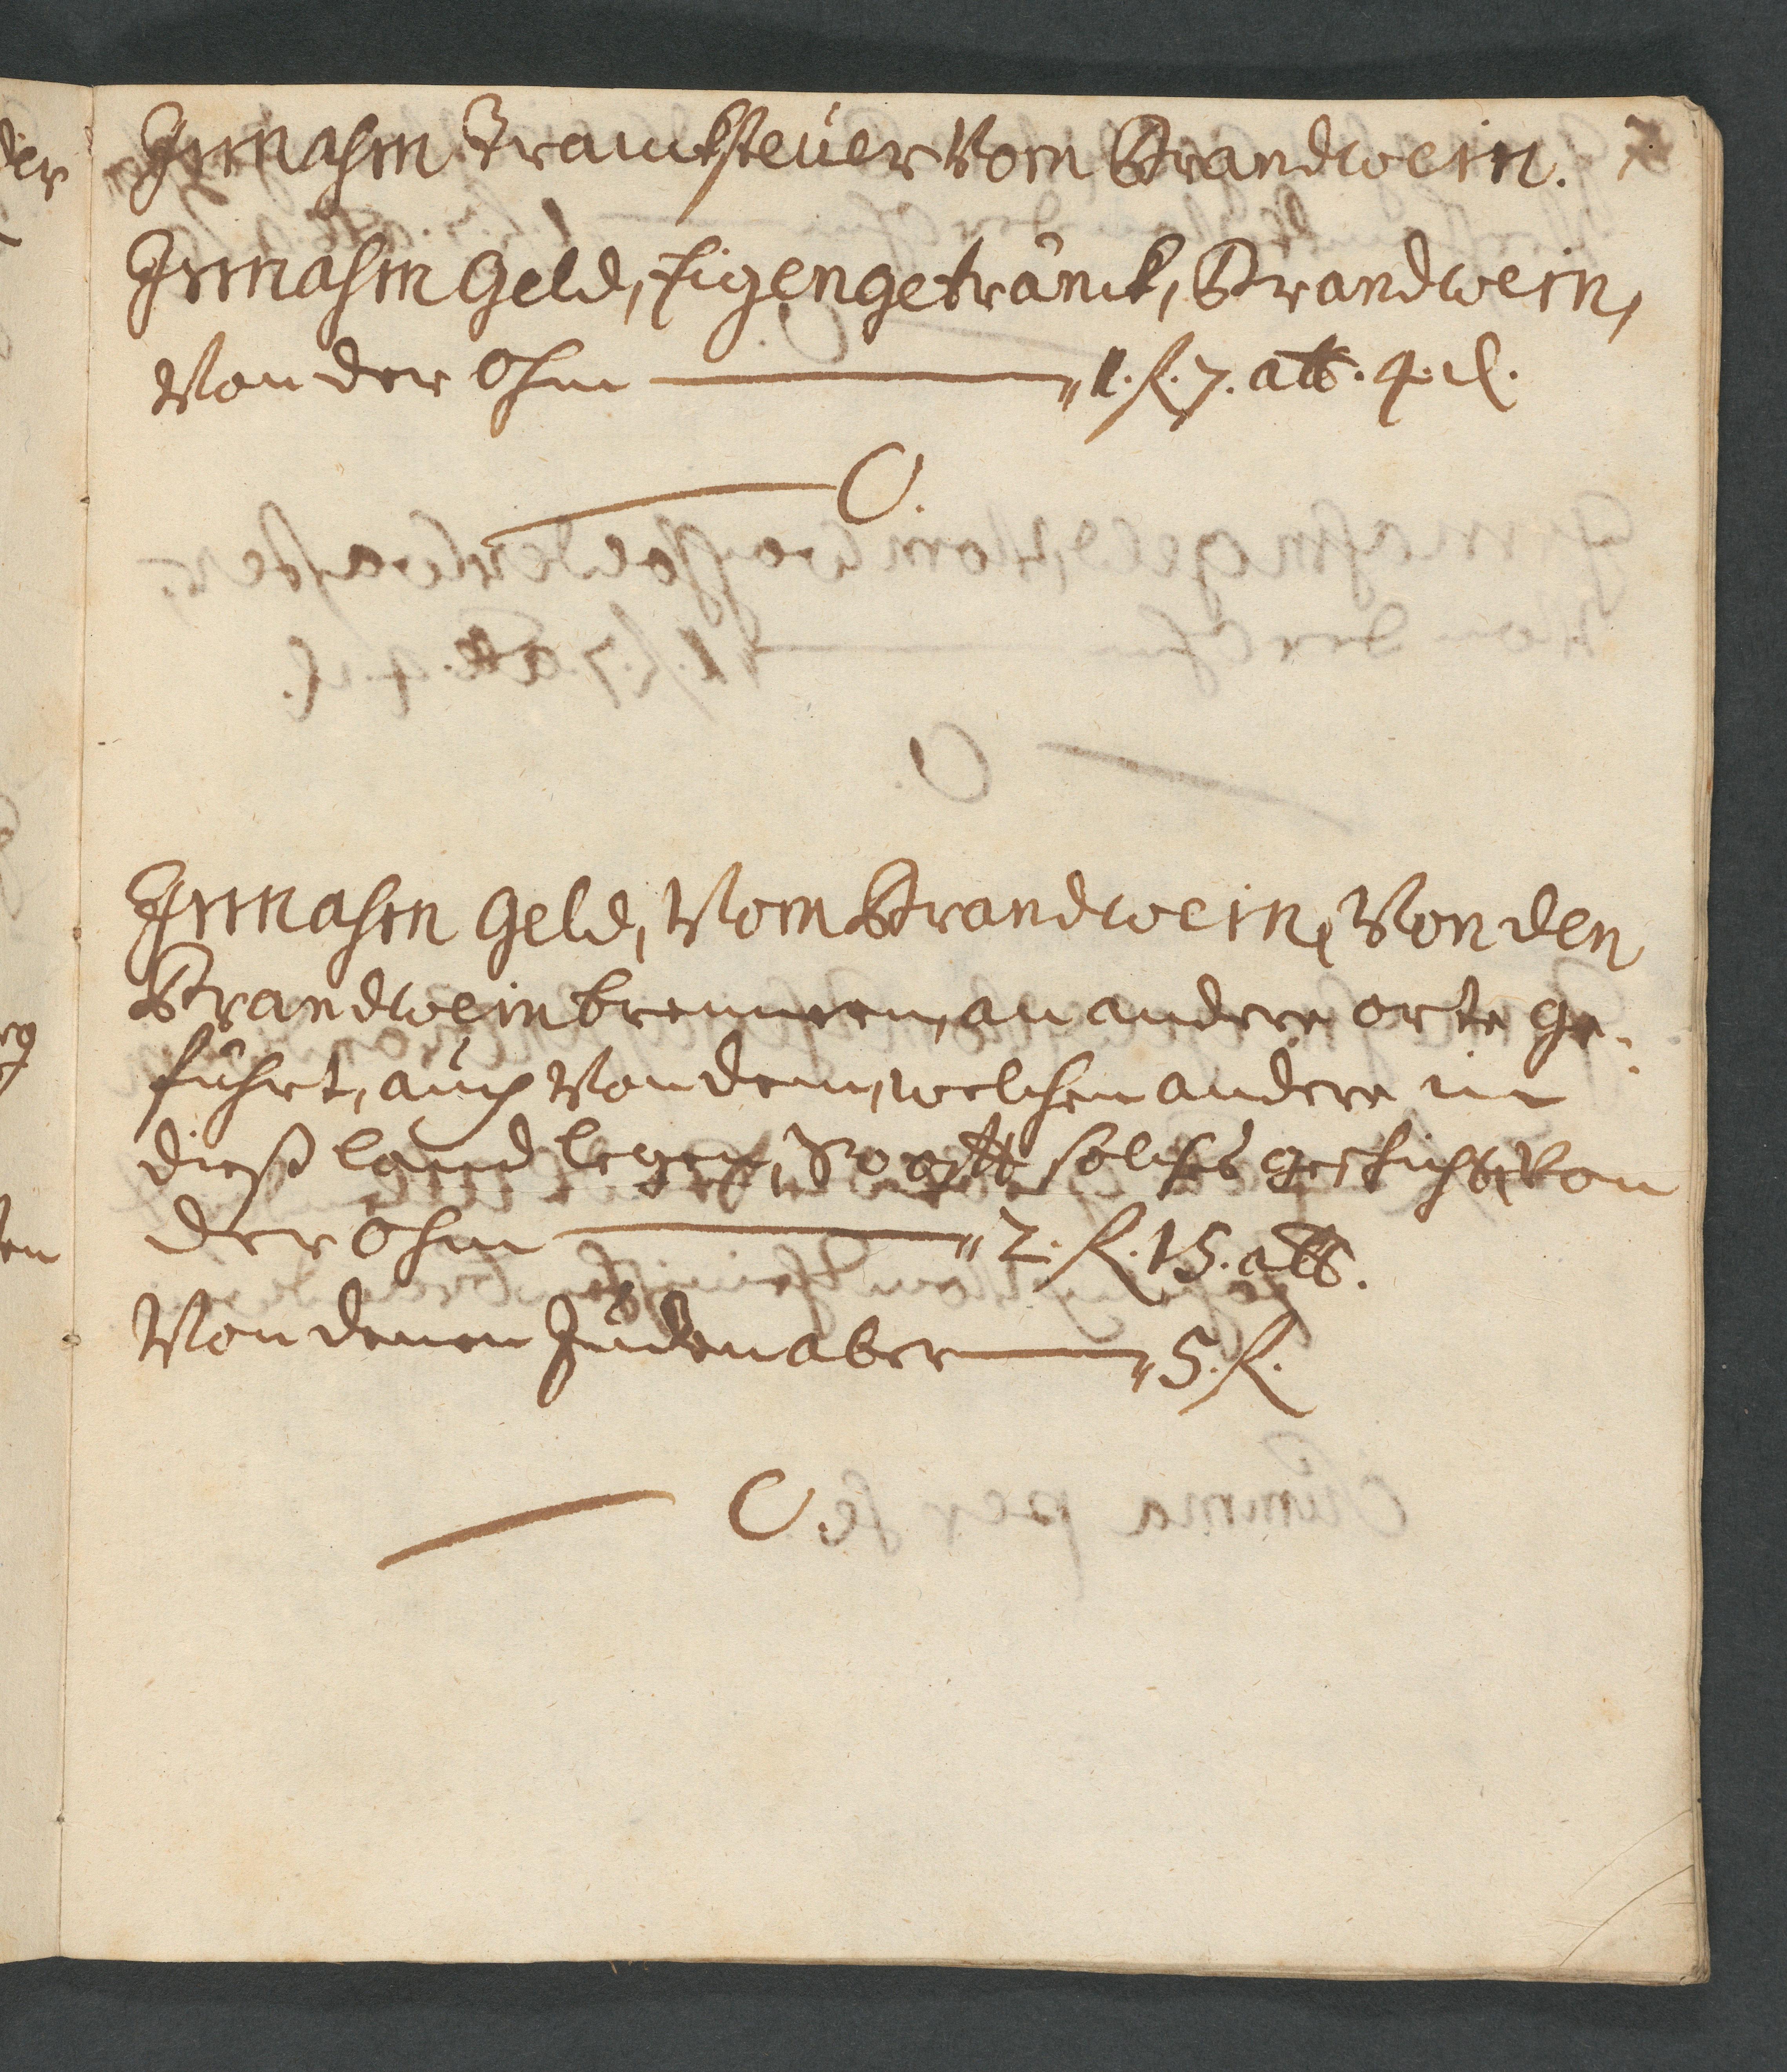 Innahm Tranksteüer Vom Brandwein. 7
Innahm Geld, Eigengetränck, Brandwein,
Von der Ohm — 1. fl. 7. alb. 4. d.
— O.
Innahm Geld, Vom Brandwein, Von den
Brandwein brennern, an andere orte ge-
führt, auch Von dem, welchen andere in
dieß land legen, So offt solches geschicht, Von
der Ohm — 2. fl. 15. alb.
Von denen Juden aber — 5. fl.
— O.